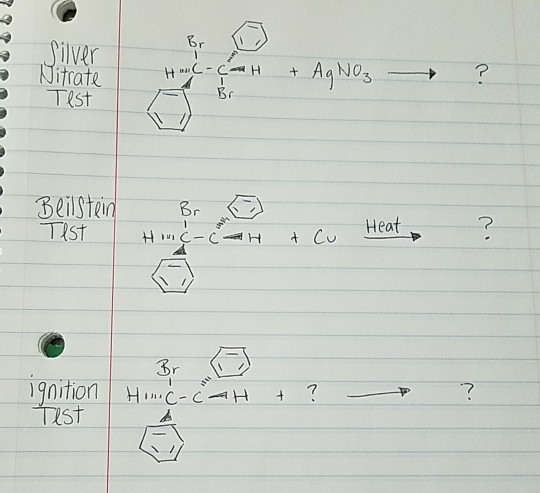 Silver
Nitrate
Test
Br
H C - C H + AgNO3 → ?
Br
Beilstein
Test
Br
H C - C H + Cu Heat → ?
ignition
Test
Br
H C - C H + ? → ?